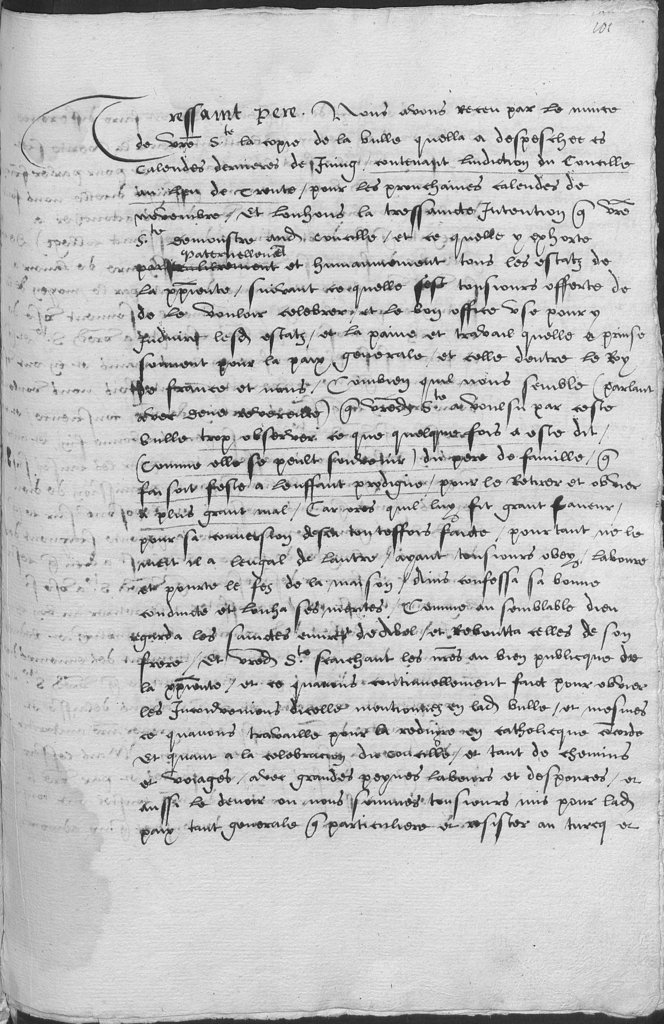 101
Tressainct pere. Nous avons receu par le nunce
de vre S.te la copie de la bulle quella a despeschee es
Calendes dernieres de Juing / contenant lindiction du Concille
au lieu de Trente / pour les prouchaines calendes de
novembre / Et louhons la tressaincte Intention q vre
S.te demonstre aud. concille / et ce quelle y exhorte
paternellement
et humainement tous les estatz de
la xpiente / suivant ce quelle sest tousiours offerte de
de le vouloir celebrer / et le bon office use pour y
Induire lesd estatz / et la paine et travail quelle a prinse
souvent pour la paix generale / et celle dentre le Roy
de france et nous / Combien quil nous semble (parlant
avec deue reverence) q vred. S.te a voulsu par ceste
bulle trop observer ce que quelque fois a este dit /
(Comme elle se peult souvenir) du pere de famille / q
faisoit feste a lenffant prodigue / pour le retirer et obvier
a plus grant mal / Car ores quil luy fit grant faveur /
pour sa conversion touteffois faicte / pourtant ne le
il a lesgal de lautre / ayant tousiours obey / laboure
et pourte le fez de la maison / ains confessa sa bonne
conduicte et louha ses merites / Comme au semblable dieu
regarda les sainctes euvres dabel / et reboutta celles de son
frere / Et vred. S.te saichant les nres au bien publicque de
la xpiente / et ce quavons continuellement faict pour obvier
les Inconveniens dicelle mentionnez en lad. bulle / et mesmes
ce quavons travaille pour la reduyre en catholicque concorde
Et quant a la celebracion du concille / et tant de chemins
et voiages / avec grandes peynes labeurs et despences / et
aussi le devoir ou nous sommes tousiours mis pour lad.
paix tant generale q particuliere et resister au turcq et